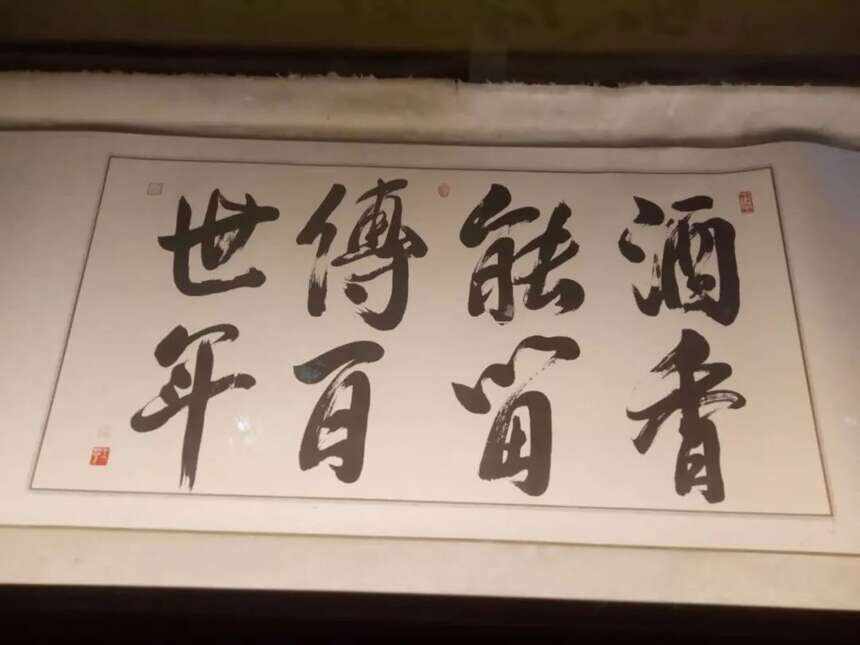 酒香
能留
傳百
世年